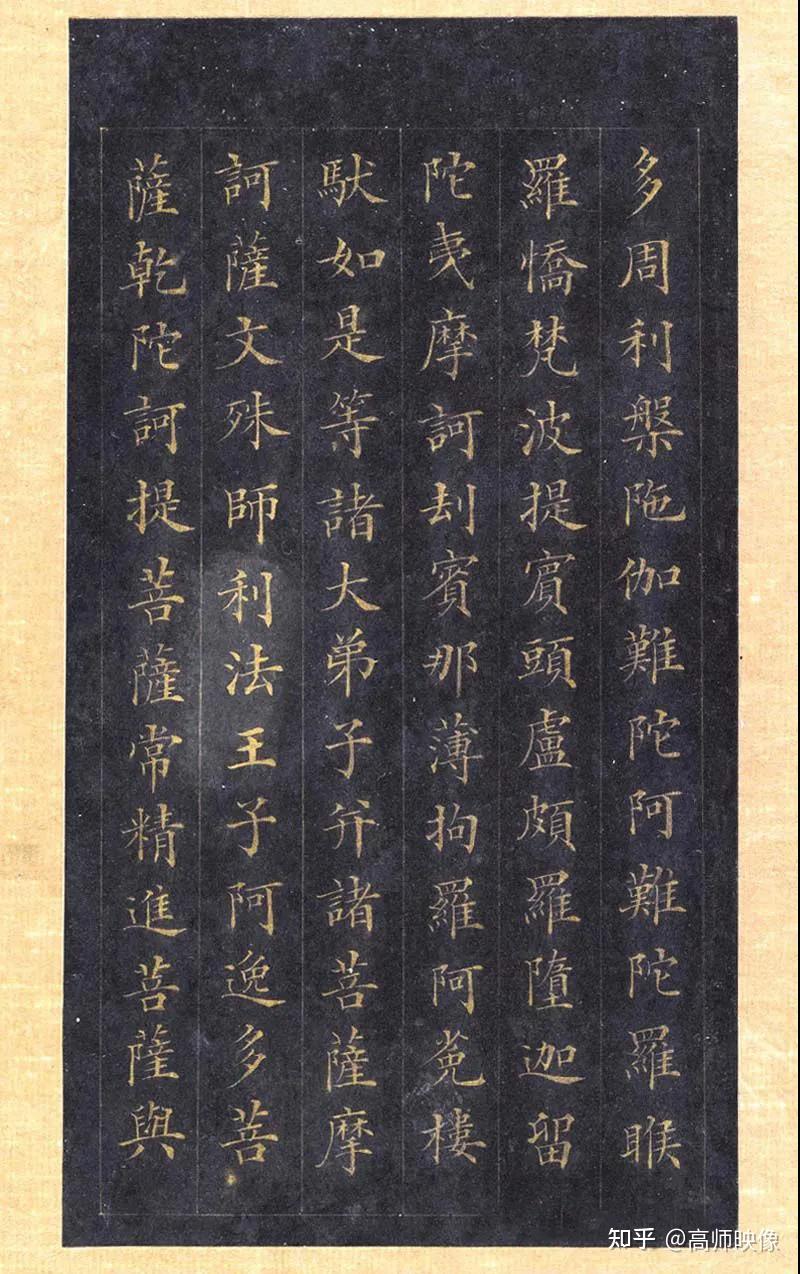 多周利槃陁伽難陀阿難陀羅睺
羅憍梵波提賓頭盧頗羅墮迦留
陀夷摩訶刦賓那薄拘羅阿㝹樓
馱如是等諸大弟子并諸菩薩摩
訶薩文殊師利法王子阿逸多菩
薩乾陀訶提菩薩常精進菩薩與
知乎 @高师映像